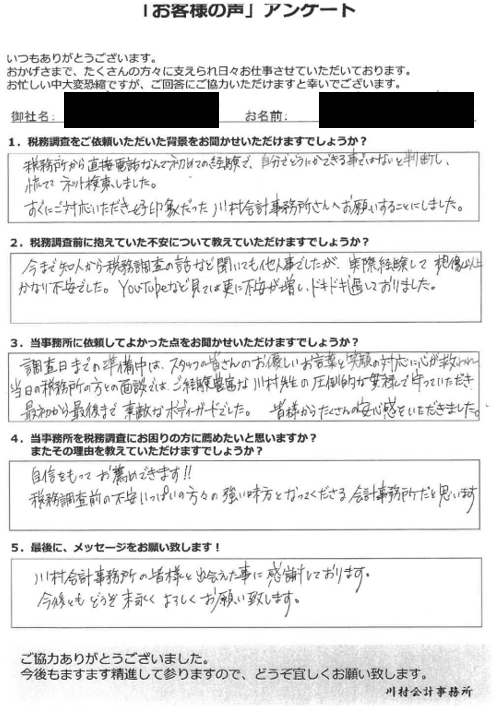 「お客様の声」アンケート
いつもありがとうございます。
おかげさまで、たくさんの方々に支えられ日々お仕事させていただいております。
お忙しい中大変恐縮ですが、ご回答にご協力いただけますと幸いでございます。
御社名： お名前：
１．税務調査をご依頼いただいた背景をお聞かせいただけますでしょうか？
税務所から直接電話なんて初めての経験で、自分でどうにかできる事ではないと判断し、
慌ててネット検索しました。
すぐにご対応いただき好印象だった川村会計事務所さんへお願いすることにしました。
２．税務調査前に抱えていた不安について教えていただけますでしょうか？
今まで知人から税務調査の話など聞いても他人事でしたが、実際経験して想像以上
かなり不安でした。YouTubeなど見ては更に不安が増し、ドキドキ過しておりました。
３．当事務所に依頼してよかった点をお聞かせいただけますでしょうか？
調査日までの準備中は、スタッフの皆さんのお優しいお言葉と笑顔の対応に心が救われ
当日の税務所の方との面談では、ご経験豊富な川村先生の圧倒的な実績で守っていただき
最初から最後まで素敵なボディーガードでした。 皆様からたくさんの安心感をいただきました。
４．当事務所を税務調査にお困りの方に薦めたいと思いますか？
またその理由を教えていただけますでしょうか？
自信をもってお薦めできます!!
税務調査前の不安いっぱいの方々の強い味方となってくださる会計事務所だと思います
５．最後に、メッセージをお願い致します！
川村会計事務所の皆様と出会えた事に感謝しております。
今後ともどうぞ末永くよろしくお願い致します。
ご協力ありがとうございました。
今後もますます精進して参りますので、どうぞ宜しくお願い致します。
川村会計事務所